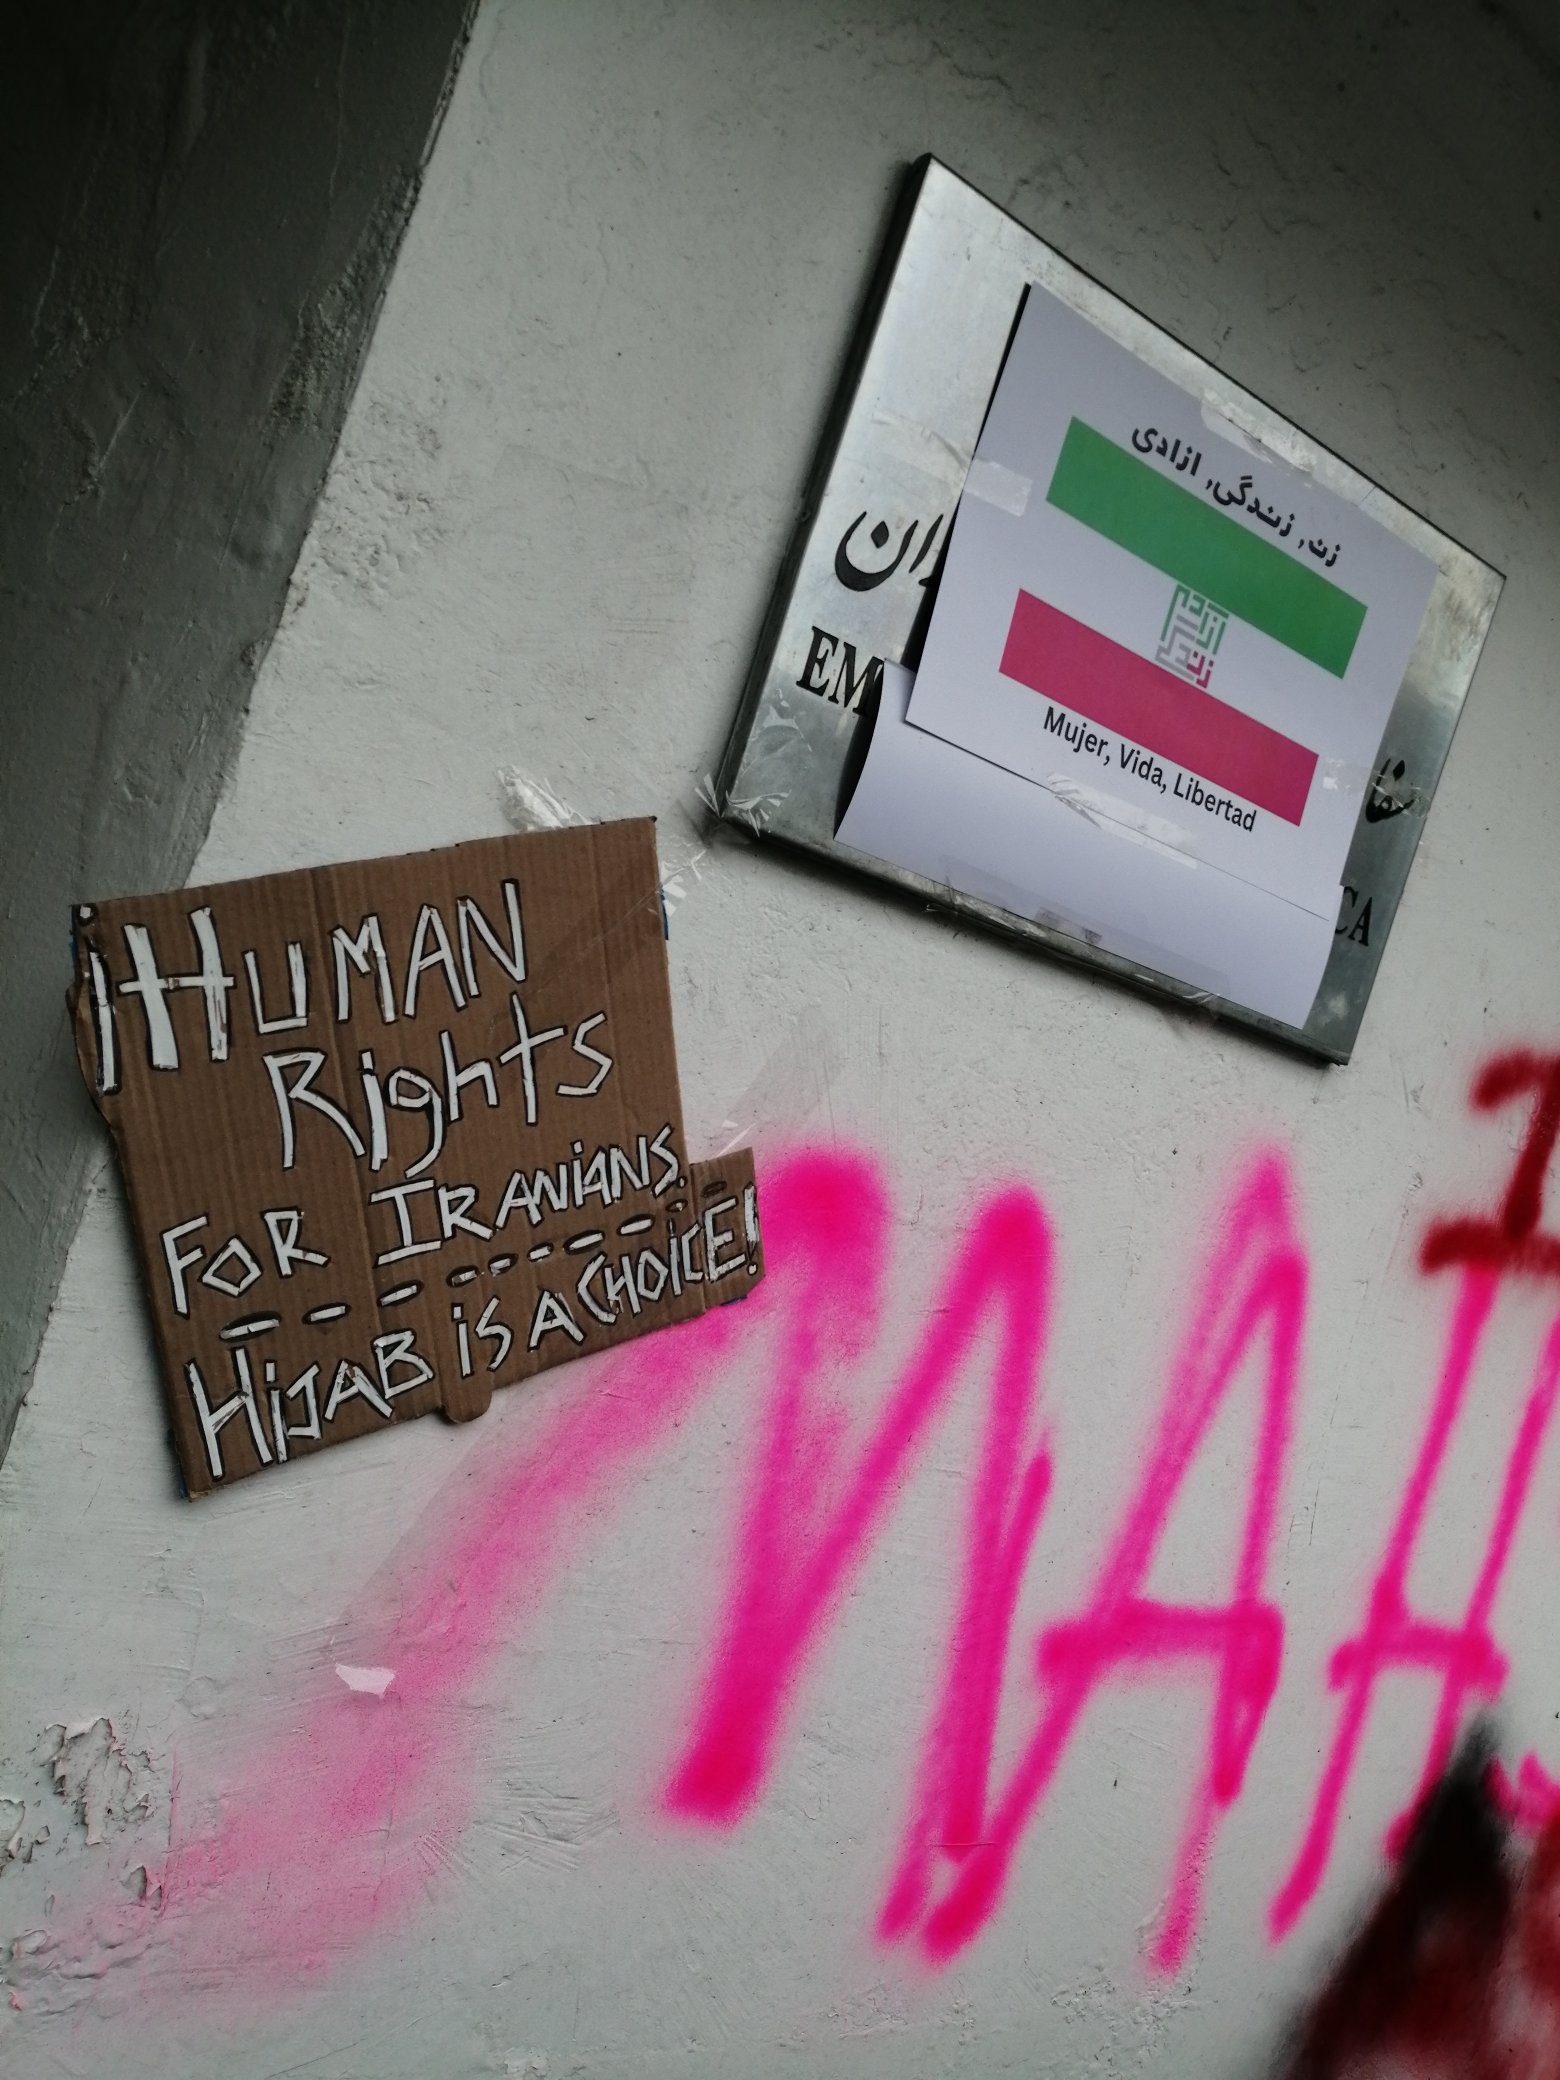 زن, زندگی, ازادی
Mujer, Vida, Libertad
EM
CA
¡HUMAN
Rights
FOR IRANiANS.
HiJAB iS A CHOiCE!
MAH